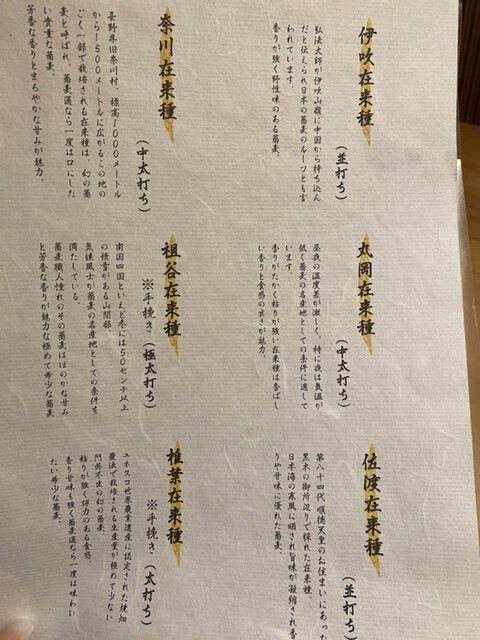 伊吹在来種
(並打ち)
弘法大師が伊吹山嶺に中国から持ち込ん
だと伝えられ日本の蕎麦のルーツとも言
われています。
香りが強く野性味のある蕎麦。
丸岡在来種
(中太打ち)
昼夜の温度差が激しく、特に夜は気温が
低く蕎麦の名産地としての条件に適して
います。
香りがたかく粘りが強い在来種は香ばし
い香りと食感の良さが魅力。
佐渡在来種
(並打ち)
第八十四代 順徳天皇のお住まいにあった
黒木の御所辺りで採れた在来種。
日本海の寒風に晒され旨味が凝縮され香
りや甘味に優れた蕎麦。
奈川在来種
(中太打ち)
長野県旧奈川村、標高1000メートル
から1500メートルに広がるこの地の
ごく一部で栽培される在来種は、幻の蕎
麦と呼ばれ、蕎麦通なら一度は口にした
い貴重な蕎麦。
芳香な香りとまろやかな甘みが魅力。
祖谷在来種
※手挽き(極太打ち)
南国四国といえど冬には50センチ以上
の積雪がある山間部。
気候風土が蕎麦の名産地としての条件を
満たしている。
蕎麦職人憧れのその蕎麦はほのかな甘み
と芳香な香りが魅力な極めて希少な蕎麦
椎葉在来種
※手挽き(太打ち)
ユネスコ世界農業遺産に認定された焼畑
農法で栽培される生産量が極めて少ない
門外不出の幻の蕎麦。
粘りが強く弾力のある食感、
香り甘味も強く蕎麦通なら一度は味わい
たい希少な蕎麦。